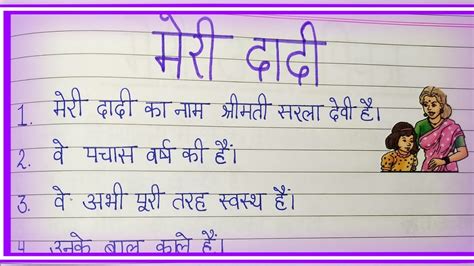 मेरी दादी
1. मेरी दादी का नाम श्रीमती सरला देवी है।
2. वे पचास वर्ष की हैं।
3. वे अभी पूरी तरह स्वस्थ हैं।
4 उनके बाल काले हैं।